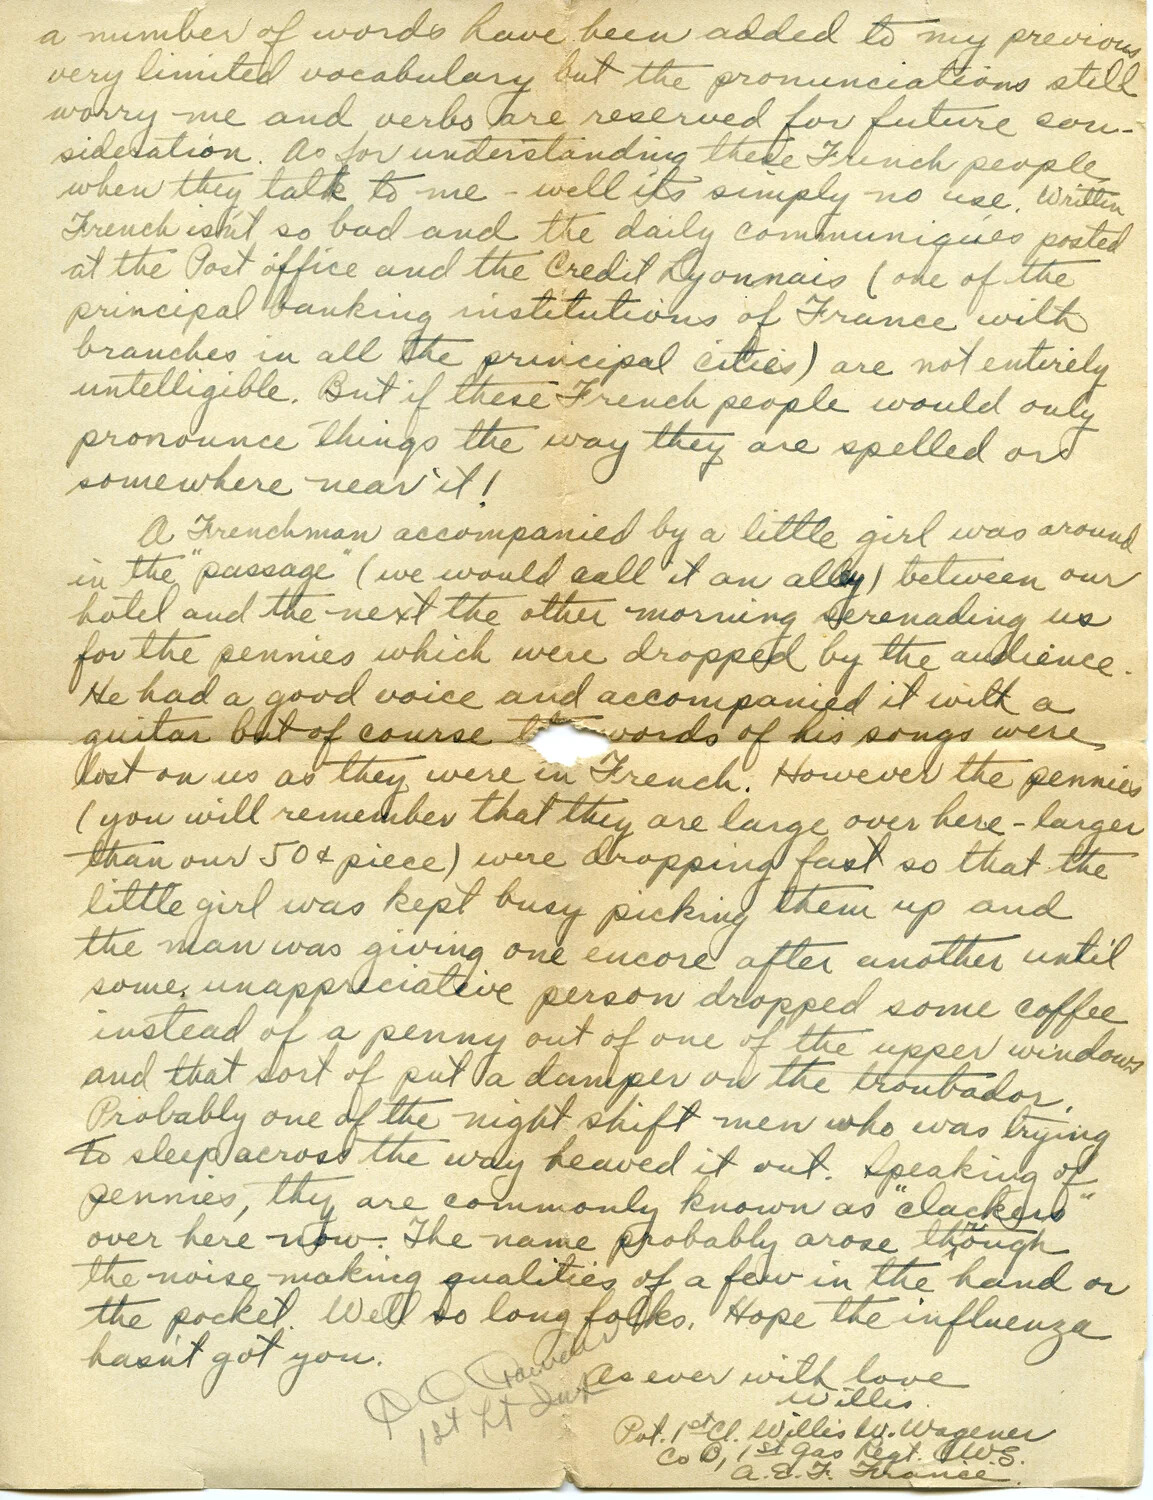 a number of words have been added to my previous
very limited vocabulary but the pronunciations still
worry me and verbs are reserved for future con-
sideration. As for understanding these French people
when they talk to me - well its simply no use. Written
French isn't so bad and the daily communiques posted
at the Post office and the Credit Lyonnais (one of the
principal banking institutions of France with
branches in all the principal cities) are not entirely
untelligible. But if these French people would only
pronounce things the way they are spelled or
somewhere near it!
A Frenchman accompanied by a little girl was around
in the "passage" (we would call it an alley) between our
hotel and the next the other morning serenading us
for the pennies which were dropped by the audience.
He had a good voice and accompanied it with a
guitar but of course words of his songs were
lost on us as they were in French. However the pennies
(you will remember that they are large over here - larger
than our 50¢ piece) were dropping fast so that the
little girl was kept busy picking them up and
the man was giving one encore after another until
some unappreciative person dropped some coffee
instead of a penny out of one of the upper windows
and that sort of put a damper on the troubador.
Probably one of the night shift men who was trying
to sleep across the way heaved it out. Speaking of
pennies, they are commonly known as "clackers"
over here now. The name probably arose through
the noise-making qualities of a few in the hand or
the pocket. Well so long folks. Hope the influenza
hasn't got you.
As ever with love
Willis.
Pvt. 1st Cl. Willis W. Wagener
Co D, 1st Gas Regt. C.W.S.
A.E.F. France.
1st Lt